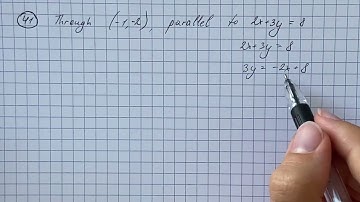 41 Through (-1,-2), parallel to 2x+3y=8
2x+3y=8
3y = -2x+8